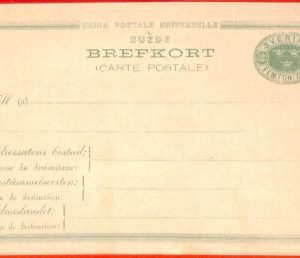 UNION POSTALE UNIVERSELLE
SUÈDE
BREFKORT
(CARTE POSTALE)
SVERIGE
FEMTON
Till (à)
dressatens bostad:
sse du destinataire:
ostanstalten:
de destination:
dresslandet:
s de destination: